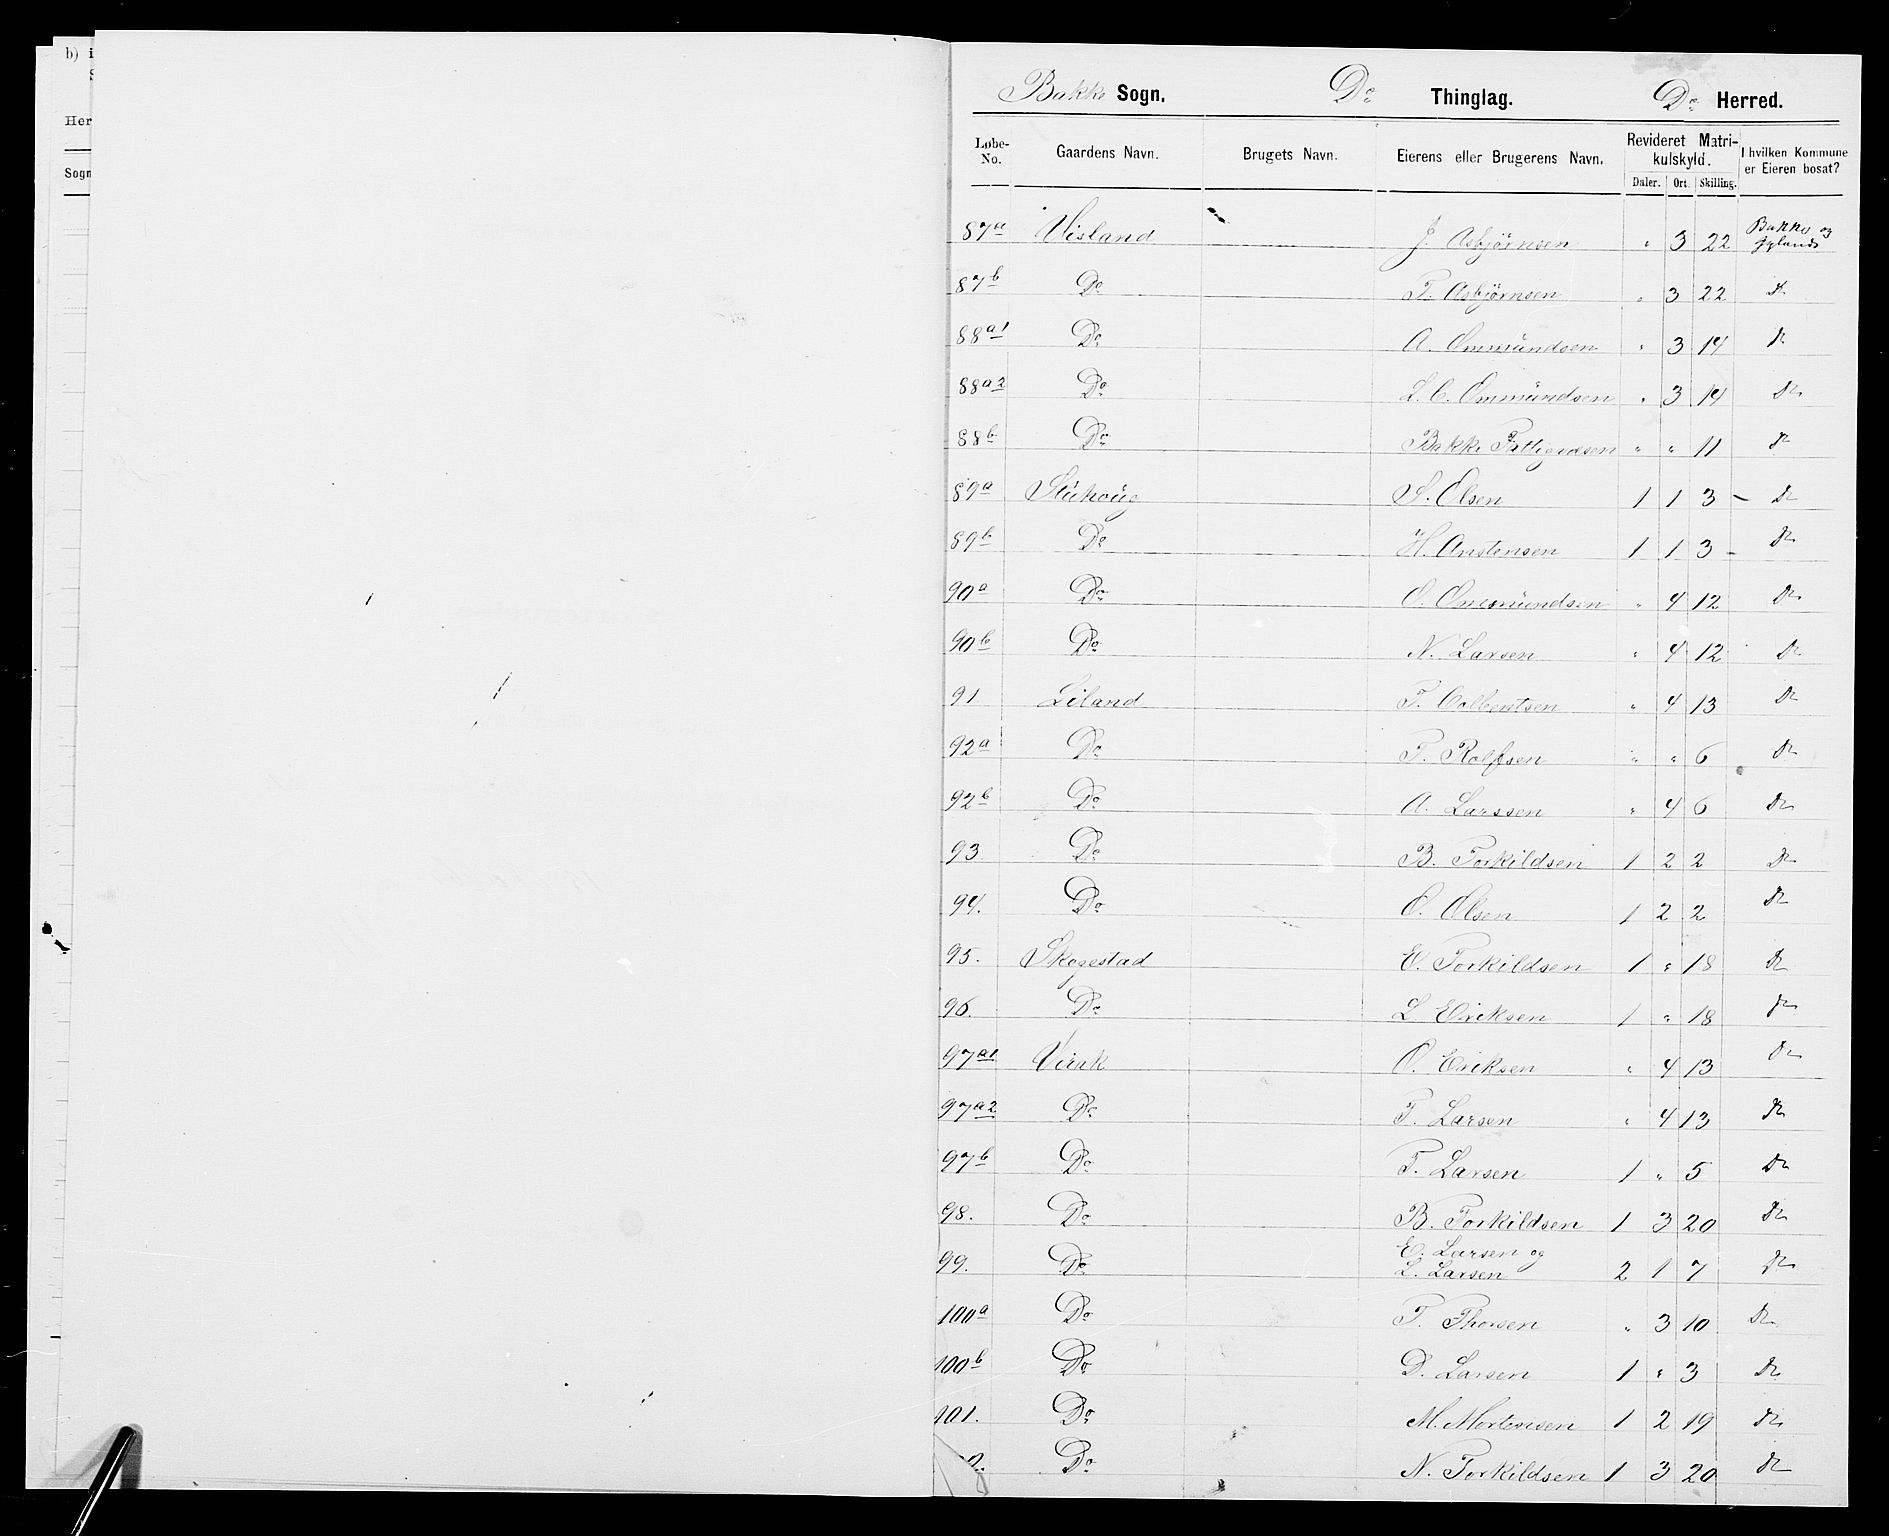 b) i
S
Her
Sogn
Bakke Sogn. Do Thinglag. Do Herred.
Løbe-No. Gaardens Navn. Brugets Navn. Eierens eller Brugerens Navn. Revideret Matri-kulskyld. I hvilken Kommune er Eieren bosat?
Daler. Ort. Skilling.
87a Visland J. Asbjörnsen " 3 22 Bakke og Gyland
87b Do T. Asbjörnsen " 3 22 do
88a1 Do A. Ommündsen " 3 14 do
88a2 Do L. C. Ommündsen " 3 14 do
88b Do Bakke " " 11 do
89a S. Olsen 1 1 3 do
89b Do H. Anstensen 1 1 3 do
90a Do O. Ommündsen " 4 12 do
90b Do N. Larsen " 4 12 do
91 Liland T. " 4 13 do
92a Do T. Rolfsen " " 6 do
92b Do A. Larssen " 4 6 do
93. Do B. Torkildsen 1 2 2 do
94. Do O. Olsen 1 2 2 do
95. Skogestad E. Torkildsen 1 " 18 do
96. Do L Eriksen 1 " 18 do
97a1 Virak O. Eriksen " 4 13 do
97a2 Do T. Larsen " 4 13 do
97b Do T. Larsen 1 " 5 do
98. Do B. Torkildsen 1 3 20 do
99. Do E. Larsen og L. Larsen 2 1 7 do
100a Do T. Thorsen " 3 10 do
100b Do D. Larsen 1 " 3 do
101. Do M. Mortensen 1 2 19 do
2. Do N. Torkildsen 1 3 20 do